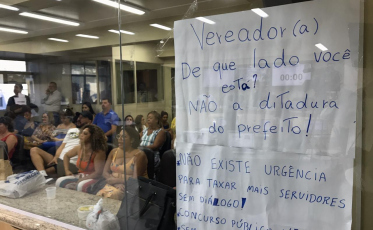 Vereador(a)
De que lado você
está?
00:00
NÃO a ditadura
do prefeito!
NÃO EXISTE URGÊNCIA
PARA TAXAR MAIS SERVIDORES
SEM DIÁLOGO!
CONCURSO PÚBLICO